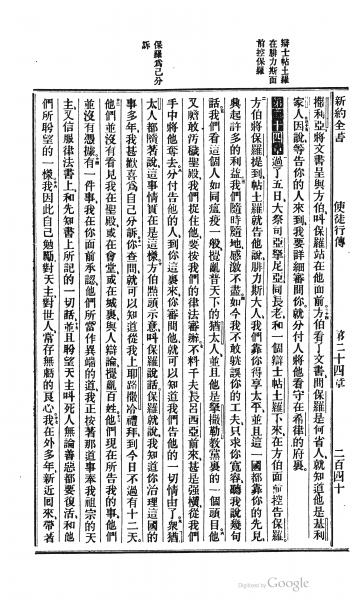 新約全書 使徒行傳 第二十四章 二百四十
辯士帖土羅
在腓力斯面
前控保羅
保羅爲己分
訴
撒利亞將文書呈與方伯叫保羅站在他面前方伯看了文書問保羅是何省人就知道他是基利
家人因說等告你的人來到我要詳細審問你就分付人將他看守在希律的府裏
第二十四章過了五日大祭司亞拏尼亞同長老和一個辯士帖土羅下來在方伯面前控告保羅
方伯將保羅提到帖土羅就告他說腓力斯大人我們靠你得享太平並且這一國都靠你的先見
興起許多的利益我們隨時隨地感激不盡如今我不敢躭誤你的工夫只求你寬容聽我說幾句
話我們看這個人如同瘟疫一般擾亂普天下的猶太人並且他是拏撒勒教黨裏的一個頭目他
又膽敢汚穢聖殿我們捉住他要按我們的律法審辦不料千夫長呂西亞前來甚是強橫從我們
手中將他奪去分付告他的人到你這裏來你審問他就可以知道我們告他的一切情由了衆猶
太人都隨著說這事情實在是這樣方伯點頭示意叫保羅說話保羅就說我知道你治理這國的
事多年我甚歡喜爲自己分訴你查問就可以知道從我上耶路撒冷禮拜到今日不過有十二天
他們並沒有看見我在聖殿或在會堂或在城裏與人辯論擾亂百姓他們現在所告我的事他們
並沒有憑據有一件事我在你面前承認他們所當作異端的道我正按著那道事奉我祖宗的天
主又信服律法書上和先知書上所記的一切話並且盼望天主叫死人無論善惡都要復活和他
們所盼望的一樣我因此自己勉勵對天主對世人常存無虧的良心我在外多年新近囘來帶著
Digitized by Google